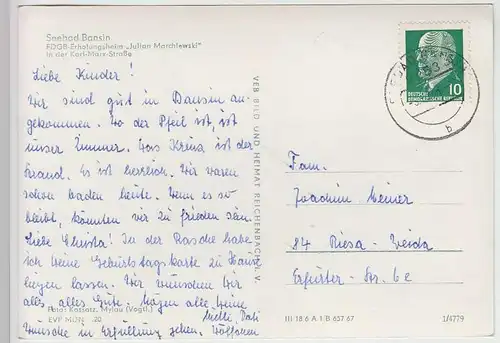 Seebad Bansin
FDGB-Erholungsheim „Julian Marchlewski"
in der Karl-Marx-Straße
Liebe Kinder!
Wir sind gut in Bansin an-
gekommen. Wo der Pfeil ist, ist
unser Zimmer. Das Kreuz ist der
Strand. Es ist herrlich. Wir waren
schon baden heute. Wenn es so
bleibt, könnten wir zufrieden sein.
Liebe Christa! In der Rasche habe
ich Deine Geburtstagskarte zu Hause
liegen lassen. Wir wünschen Dir
alles, alles Gute. Mögen alle Deine
Foto: Kassatz, Mylau (Vogtl.)
Wünsche in Erfüllung gehen.
EVP MDN
VEB BILD UND HEIMAT REICHENBACH I. V.
10
DEUTSCHE
DEMOKRATISCHE REPUBLIK
b
Fam.
Joachim
84 Riesa-Weida
Erfurter-Str. 6c
III 18 6 A 1 B 657 67
1/4779